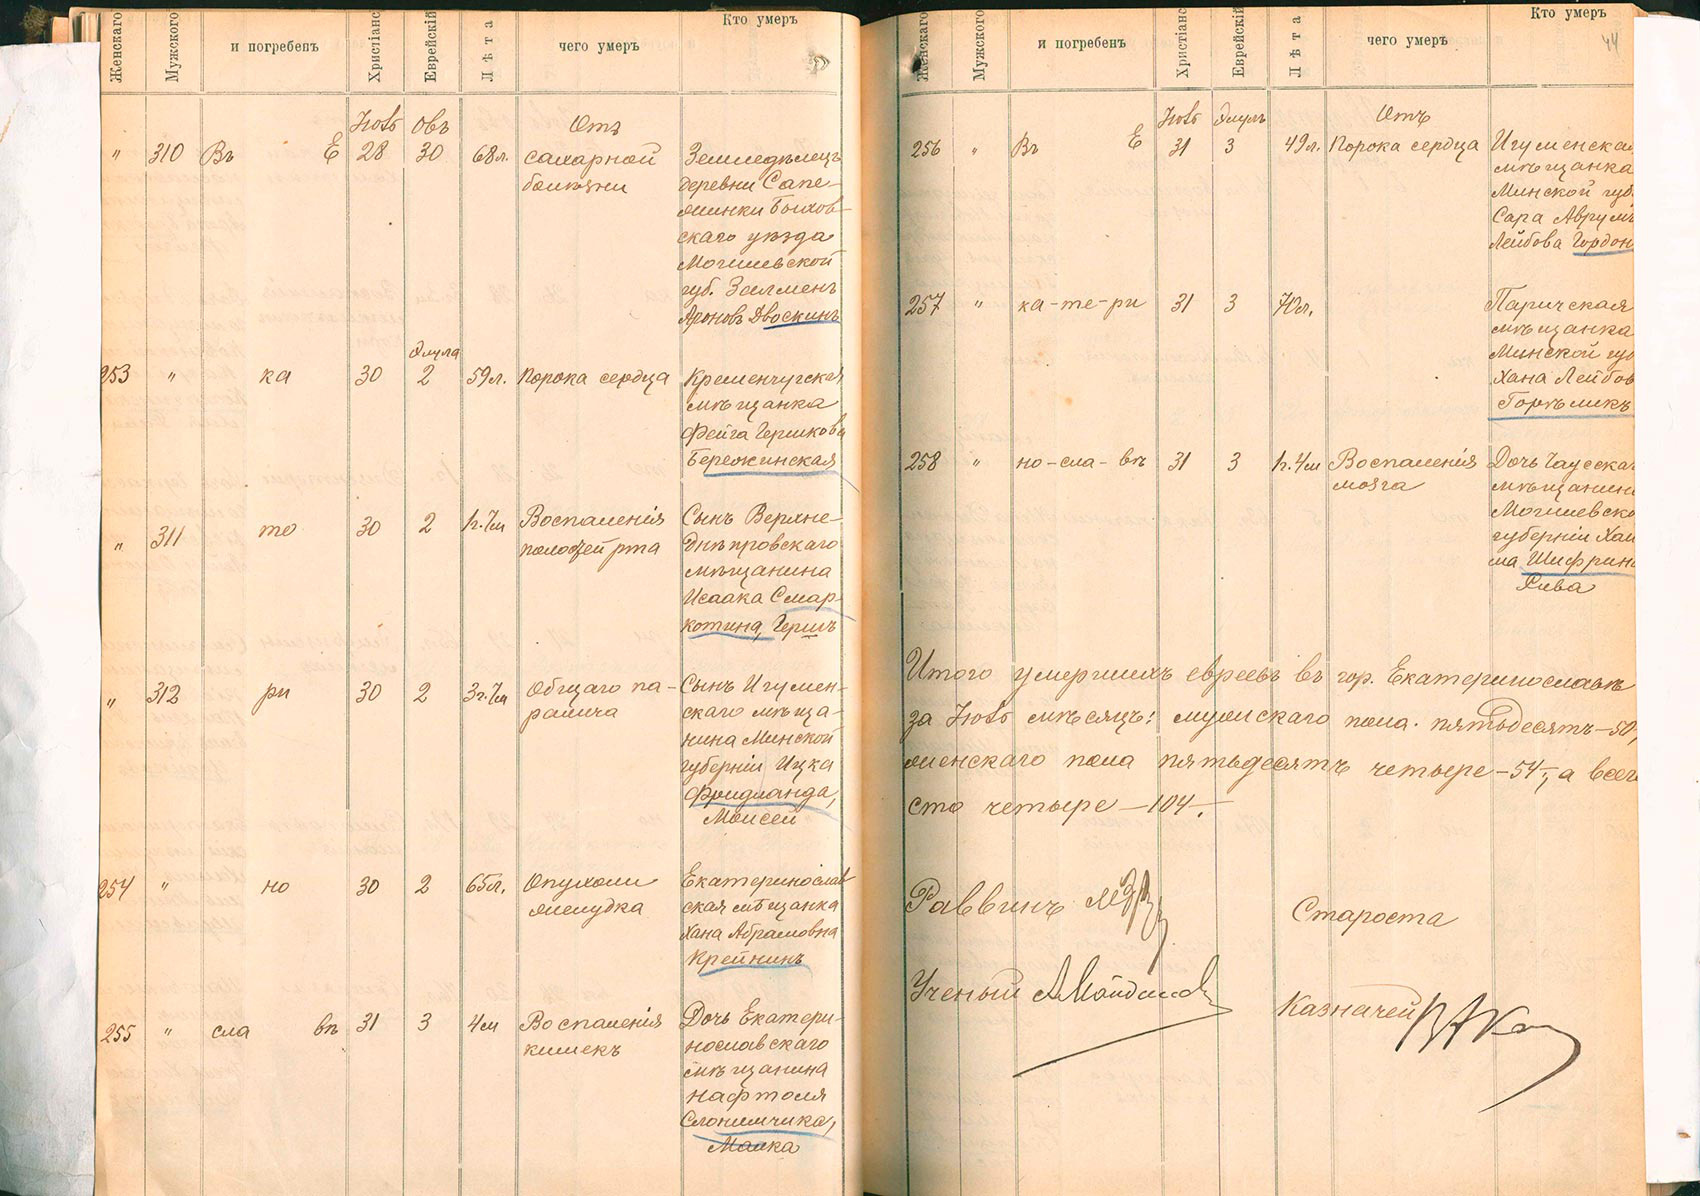 Женскаго
Мужского
и погребенъ
Христіанс
Еврейскій
Лѣта
чего умеръ
Кто умеръ
Іюль Овъ Отъ
" 310 Въ Е 28 30 68 л. сахарной
болѣзни
Земледѣлецъ
деревни Сапе-
жинки Быхов-
скаго уѣзда
Могилевской
губ. Залменъ
Ароновъ Двоскинъ
Элула
253 " ка 30 2 59 л. Порока сердца
Кременчугская
мѣщанка
Фейга Гершкова
Бережинская
" 311 то 30 2 1 г. 7 м Воспаленія
полостей рта
Сынъ Верхне-
днѣпровскаго
мѣщанина
Исаака Смар-
котина, Гершъ
" 312 ри 30 2 3 г. 7 м Общаго па-
ралича
Сынъ Игумен-
скаго мѣща-
нина Минской
губерніи Ицка
Фридланда,
Моисей
254 " но 30 2 65 л. Опухоли
желудка
Екатеринослав
ская мѣщанка
Хана Абрамовна
Крейнинъ
255 " сла въ 31 3 4 м Воспаленія
кишекъ
Дочь Екатери-
нославскаго
мѣщанина
Нафтоля
Слонимчика,
Малка
Женскаго
Мужского
и погребенъ
Христіанс
Еврейскій
Лѣта
чего умеръ
Кто умеръ
44
Іюль Элулъ Отъ
256 " Въ Е 31 3 49 л. Порока сердца
Игуменская
мѣщанка
Минской губ.
Сара Аврумъ
Лейбова Гордон
257 " ка-те-ри 31 3 70 л.
Паричская
мѣщанка
Минской гу
Хана Лейбов
Горѣликъ
258 " но-сла-вѣ 31 3 1 г. 4 м Воспаленія
мозга
Дочь Чаусска
мѣщанин
Могилевско
губерніи Хаи
ма Шифрин
Рива
Итого умершихъ евреевъ въ гор. Екатеринославѣ
за Іюль мѣсяцъ: мужскаго пола пятьдесятъ - 50,
женскаго пола пятьдесятъ четыре - 54 -, а всего
сто четыре - 104. -
Раввинъ
Староста
Ученый
Казначей